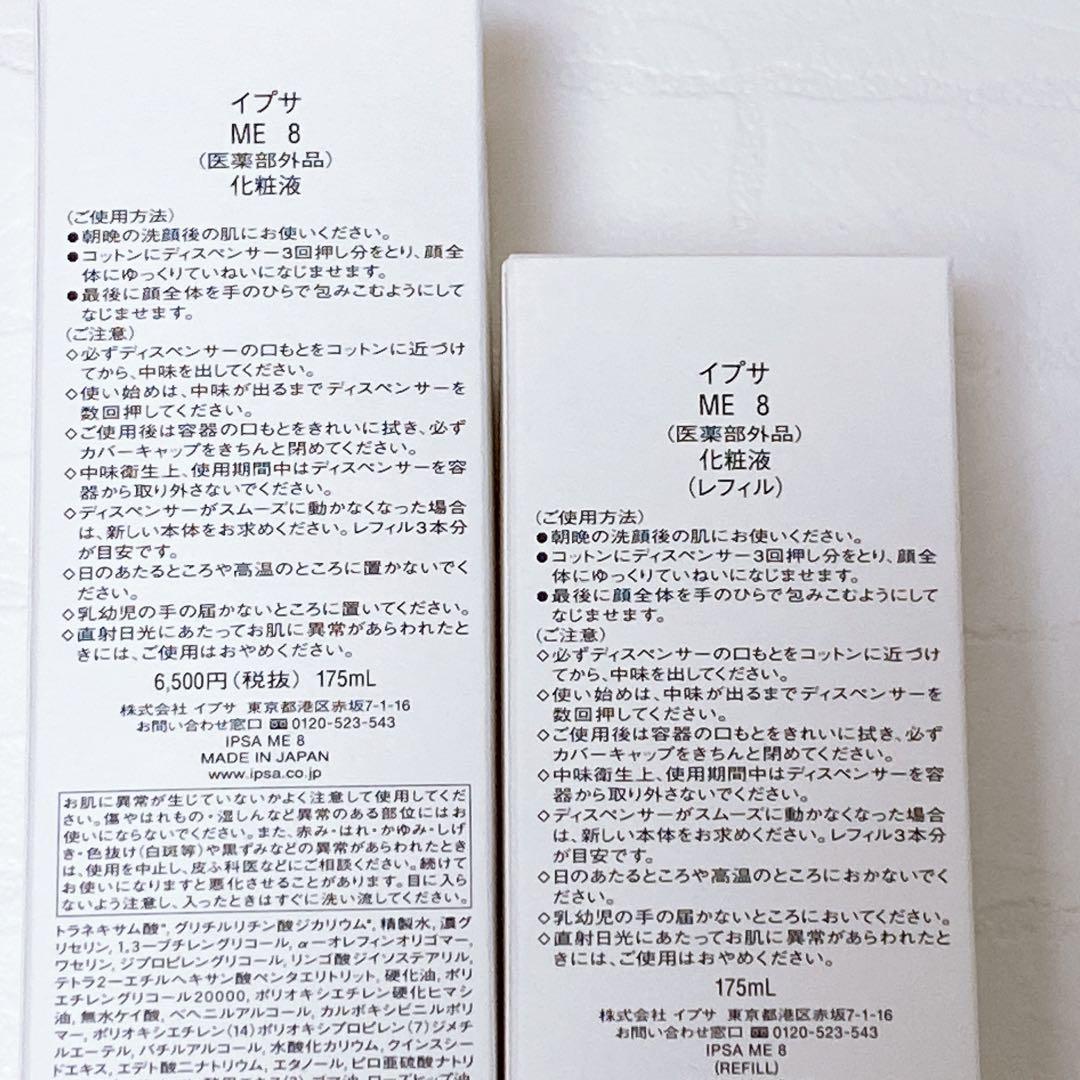 イプサ
ME 8
(医薬部外品)
化粧液
〈ご使用方法〉
●朝晩の洗顔後の肌にお使いください。
●コットンにディスペンサー3回押し分をとり、顔全
体にゆっくりていねいになじませます。
●最後に顔全体を手のひらで包みこむようにして
なじませます。
〈ご注意〉
◇必ずディスペンサーの口もとをコットンに近づけ
てから、中味を出してください。
◇使い始めは、中味が出るまでディスペンサーを
数回押してください。
◇ご使用後は容器の口もとをきれいに拭き、必ず
カバーキャップをきちんと閉めてください。
◇中味衛生上、使用期間中はディスペンサーを容
器から取り外さないでください。
◇ディスペンサーがスムーズに動かなくなった場合
は、新しい本体をお求めください。レフィル3本分
が目安です。
◇日のあたるところや高温のところに置かないでく
ださい。
◇乳幼児の手の届かないところに置いてください。
◇直射日光にあたってお肌に異常があらわれたと
きには、ご使用はおやめください。
6,500円(税抜) 175mL
株式会社 イプサ 東京都港区赤坂7-1-16
お問い合わせ窓口 0120-523-543
IPSA ME 8
MADE IN JAPAN
www.ipsa.co.jp
お肌に異常が生じていないかよく注意して使用してくだ
さい。傷やはれもの・湿しんなど異常のある部位にはお
使いにならないでください。また、赤み・はれ・かゆみ・しげ
き・色抜け(白斑等)や黒ずみなどの異常があらわれたとき
は、使用を中止し、皮ふ科医などにご相談ください。続けて
お使いになりますと悪化させることがあります。目に入ら
ないよう注意し、入ったときはすぐに洗い流してください。
トラネキサム酸*, グリチルリチン酸ジカリウム*, 精製水, 濃グ
リセリン, 1,3ーブチレングリコール, αーオレフィンオリゴマー,
ワセリン, ジプロピレングリコール, リンゴ酸ジイソステアリル,
テトラ2ーエチルヘキサン酸ペンタエリトリット, 硬化油, ポリ
エチレングリコール20000, ポリオキシエチレン硬化ヒマシ
油, 無水ケイ酸, ベヘニルアルコール, カルボキシビニルポリ
マー, ポリオキシエチレン(14)ポリオキシプロピレン(7)ジメチ
ルエーテル, バチルアルコール, 水酸化カリウム, クインスシー
ドエキス, エデト酸二ナトリウム, エタノール, ピロ亜硫酸ナトリ
イプサ
ME 8
(医薬部外品)
化粧液
(レフィル)
〈ご使用方法〉
●朝晩の洗顔後の肌にお使いください。
●コットンにディスペンサー3回押し分をとり、顔全
体にゆっくりていねいになじませます。
●最後に顔全体を手のひらで包みこむようにして
なじませます。
〈ご注意〉
◇必ずディスペンサーの口もとをコットンに近づけ
てから、中味を出してください。
◇使い始めは、中味が出るまでディスペンサーを
数回押してください。
◇ご使用後は容器の口もとをきれいに拭き、必ず
カバーキャップをきちんと閉めてください。
◇中味衛生上、使用期間中はディスペンサーを容
器から取り外さないでください。
◇ディスペンサーがスムーズに動かなくなった場合
は、新しい本体をお求めください。レフィル3本分
が目安です。
◇日のあたるところや高温のところにおかないでく
ださい。
◇乳幼児の手の届かないところにおいてください。
◇直射日光にあたってお肌に異常があらわれたと
きには、ご使用はおやめください。
175mL
株式会社 イプサ 東京都港区赤坂7-1-16
お問い合わせ窓口 0120-523-543
IPSA ME 8
(REFILL)